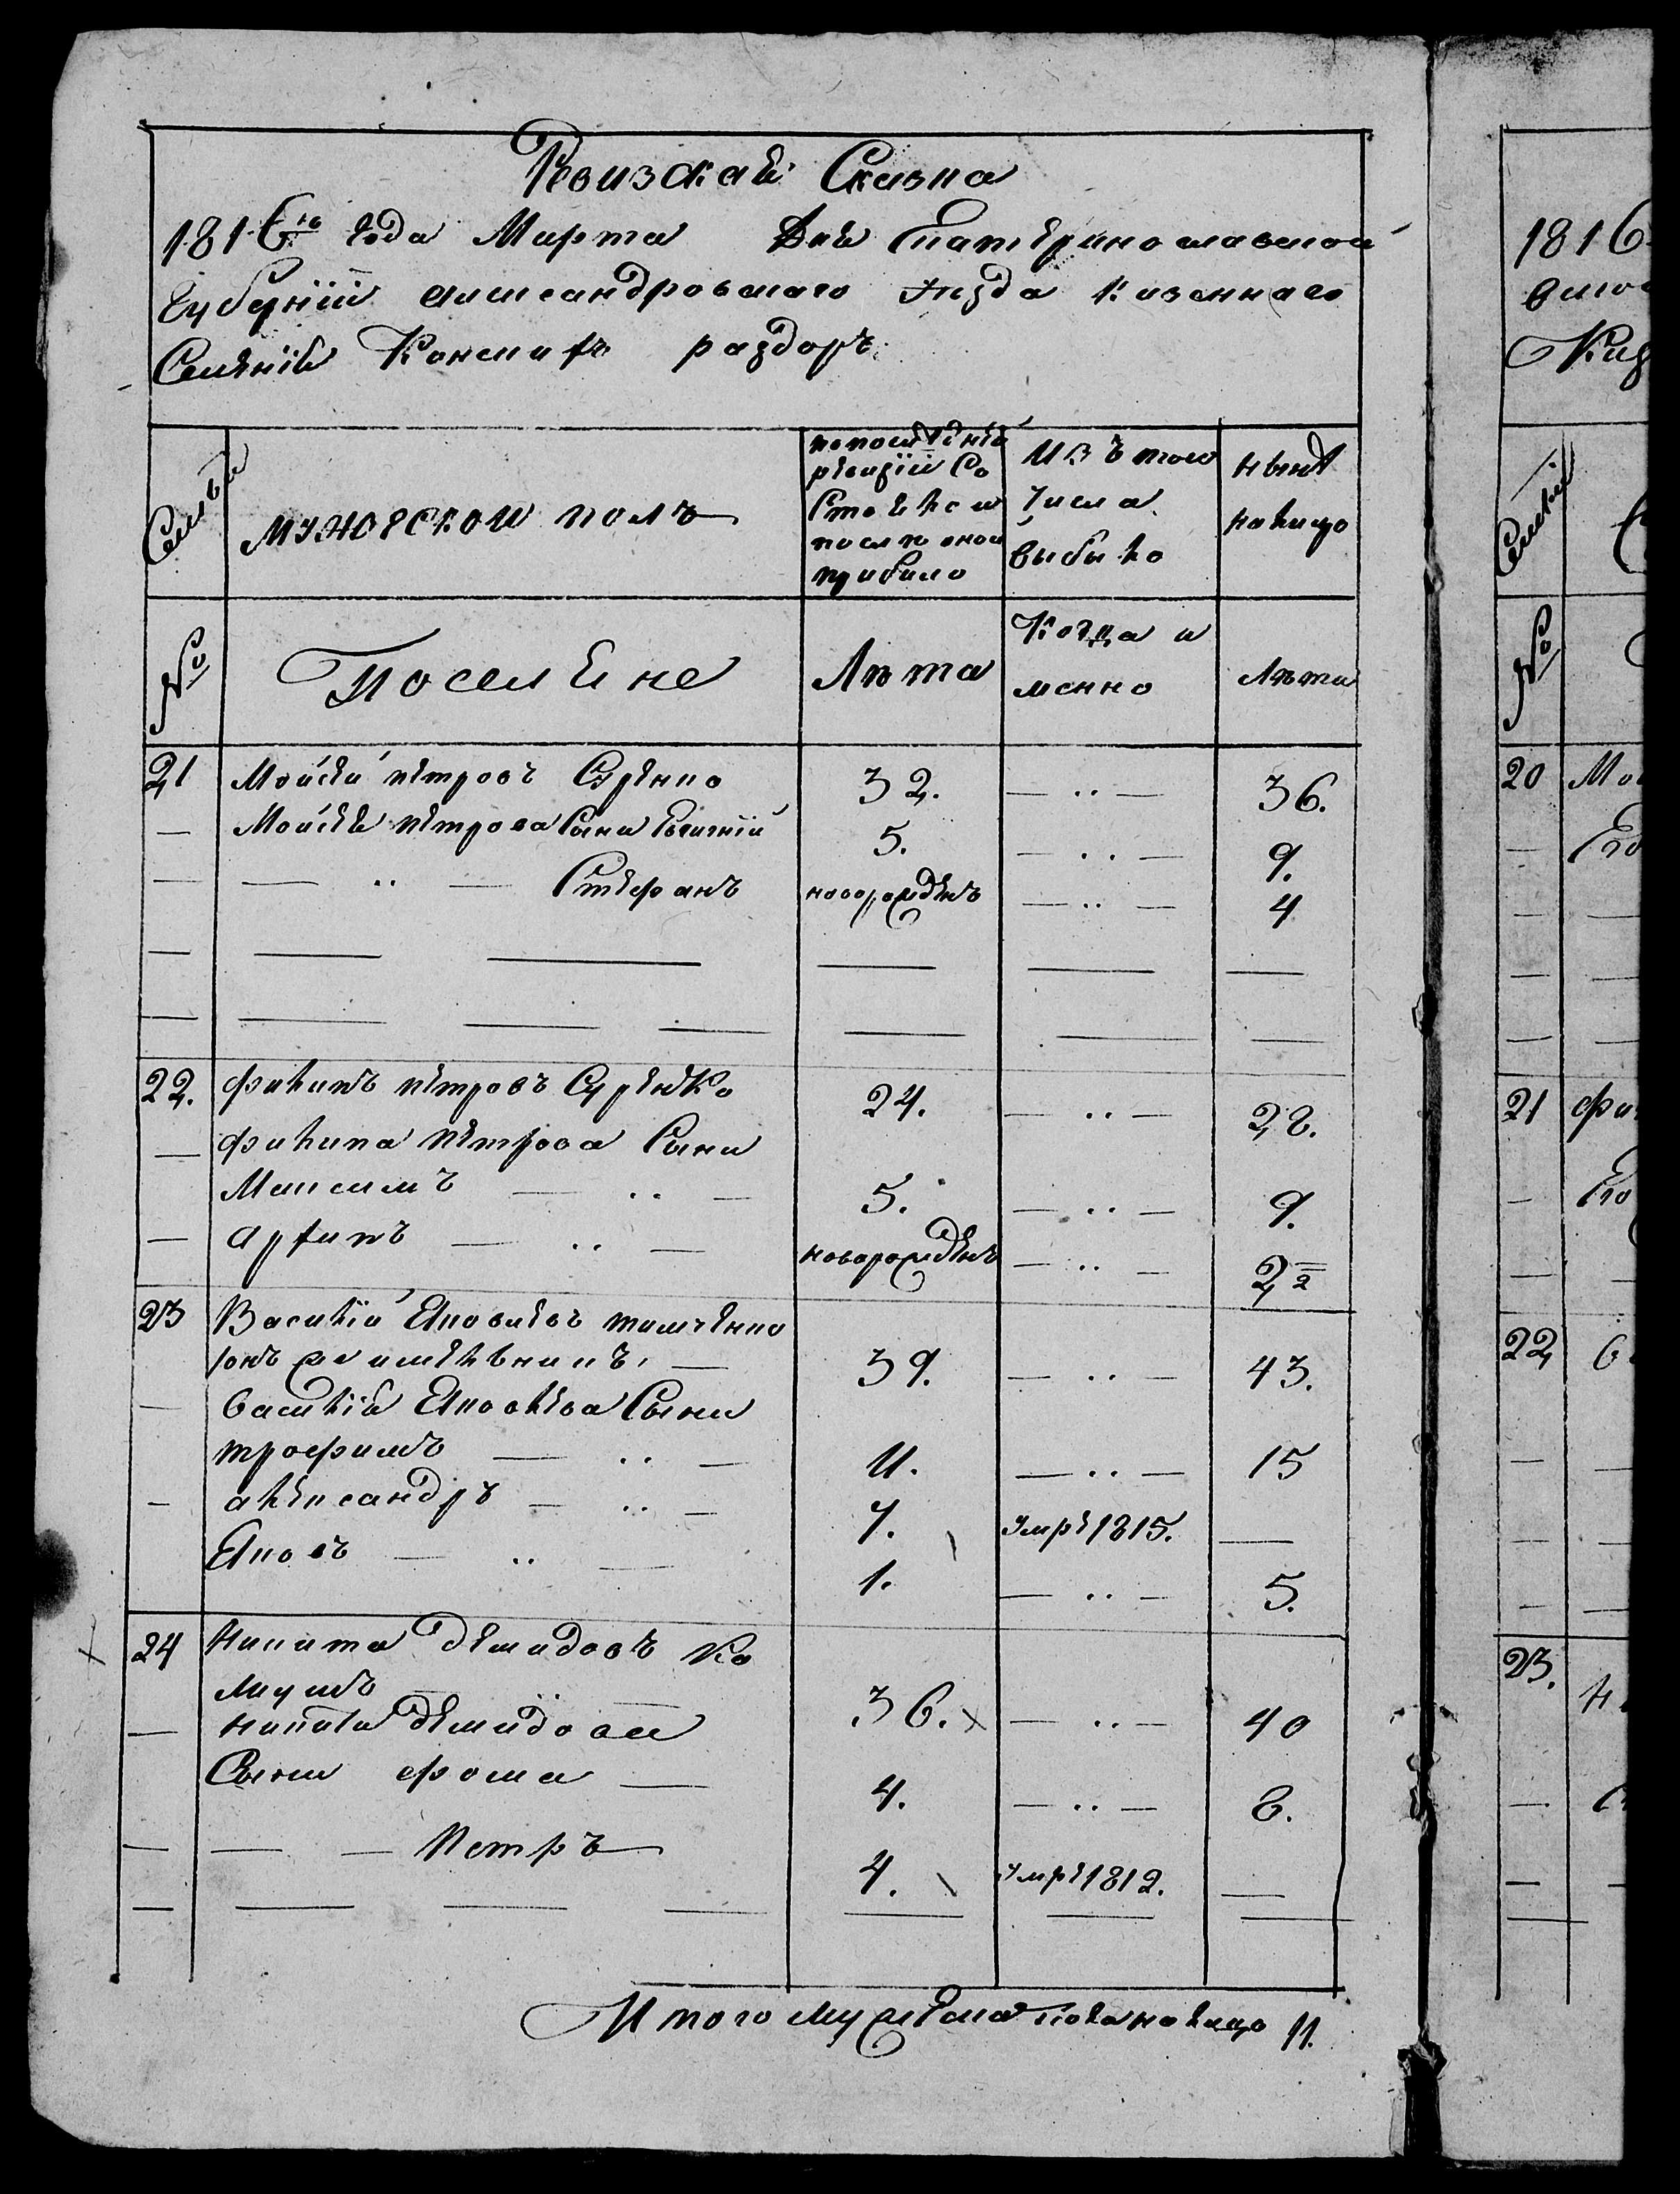 Ревизская Сказка
1816го года Марта Дня Екатеринославской
Губерніи Александровского уезда казеннаго
Селенія Конскихъ раздоръ
Семьи
мужескои полъ
попоследнеи
ревизіи Со
Стояло и
после оной
прибыло
Изъ того
числа
выбыло
ныне
налицо
№
Поселяне
Лѣта
Когда и
менно
Лѣта
21 Мойсей петровъ Сѣренко 32. — .. — 36.
— Мойсея петрова Сыни 5. — .. — 9.
— — .. — Стефанъ новорожденъ — .. — 4
22. филипъ петровъ Сѣренко 24. — .. — 28.
— филипа петрова Сыни
Максимъ — .. — 5. — .. — 9.
— архипъ — .. — новорожденъ — .. — 2
23 Василій Яковлевъ
39. — .. — 43.
— василія Яковлева Сыни
трофимъ — .. — 11. — .. — 15
— александръ — .. — 7. умре 1815. —
Яковъ — .. — 1. — .. — 5.
24 никита демидовъ Ко
36. — .. — 40
— никиты демидова
Сыни фома — 4. — .. — 8.
— — — Петръ 4. умре 1812. —
Итого мужеска пола налицо 11.
1816
Каз
Семьи
№
20 Мо
Его
21 фи
Его
22
23.